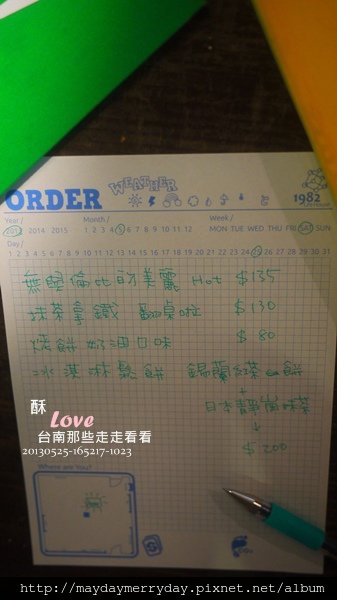 ORDER
WEATHER
1982
Year /
Month /
Week /
2013 2014 2015
1 2 3 4 5 6 7 8 9 10 11 12
MON TUE WED THU FRI SAT SUN
Day /
1 2 3 4 5 6 7 8 9 10 11 12 13 14 15 16 17 18 19 20 21 22 23 24 25 26 27 28 29 30 31
無與倫比的美麗 Hot $135
抹茶拿鐵 翻桌啦 $130
烤餅 奶油口味 $80
冰淇淋鬆餅 錫蘭紅茶 餅
+
日本靜岡抹茶
$200
酥
Love
台南那些走走看看
20130525-165217-1023
Where are You?
http://maydaymerryday.pixnet.net/album